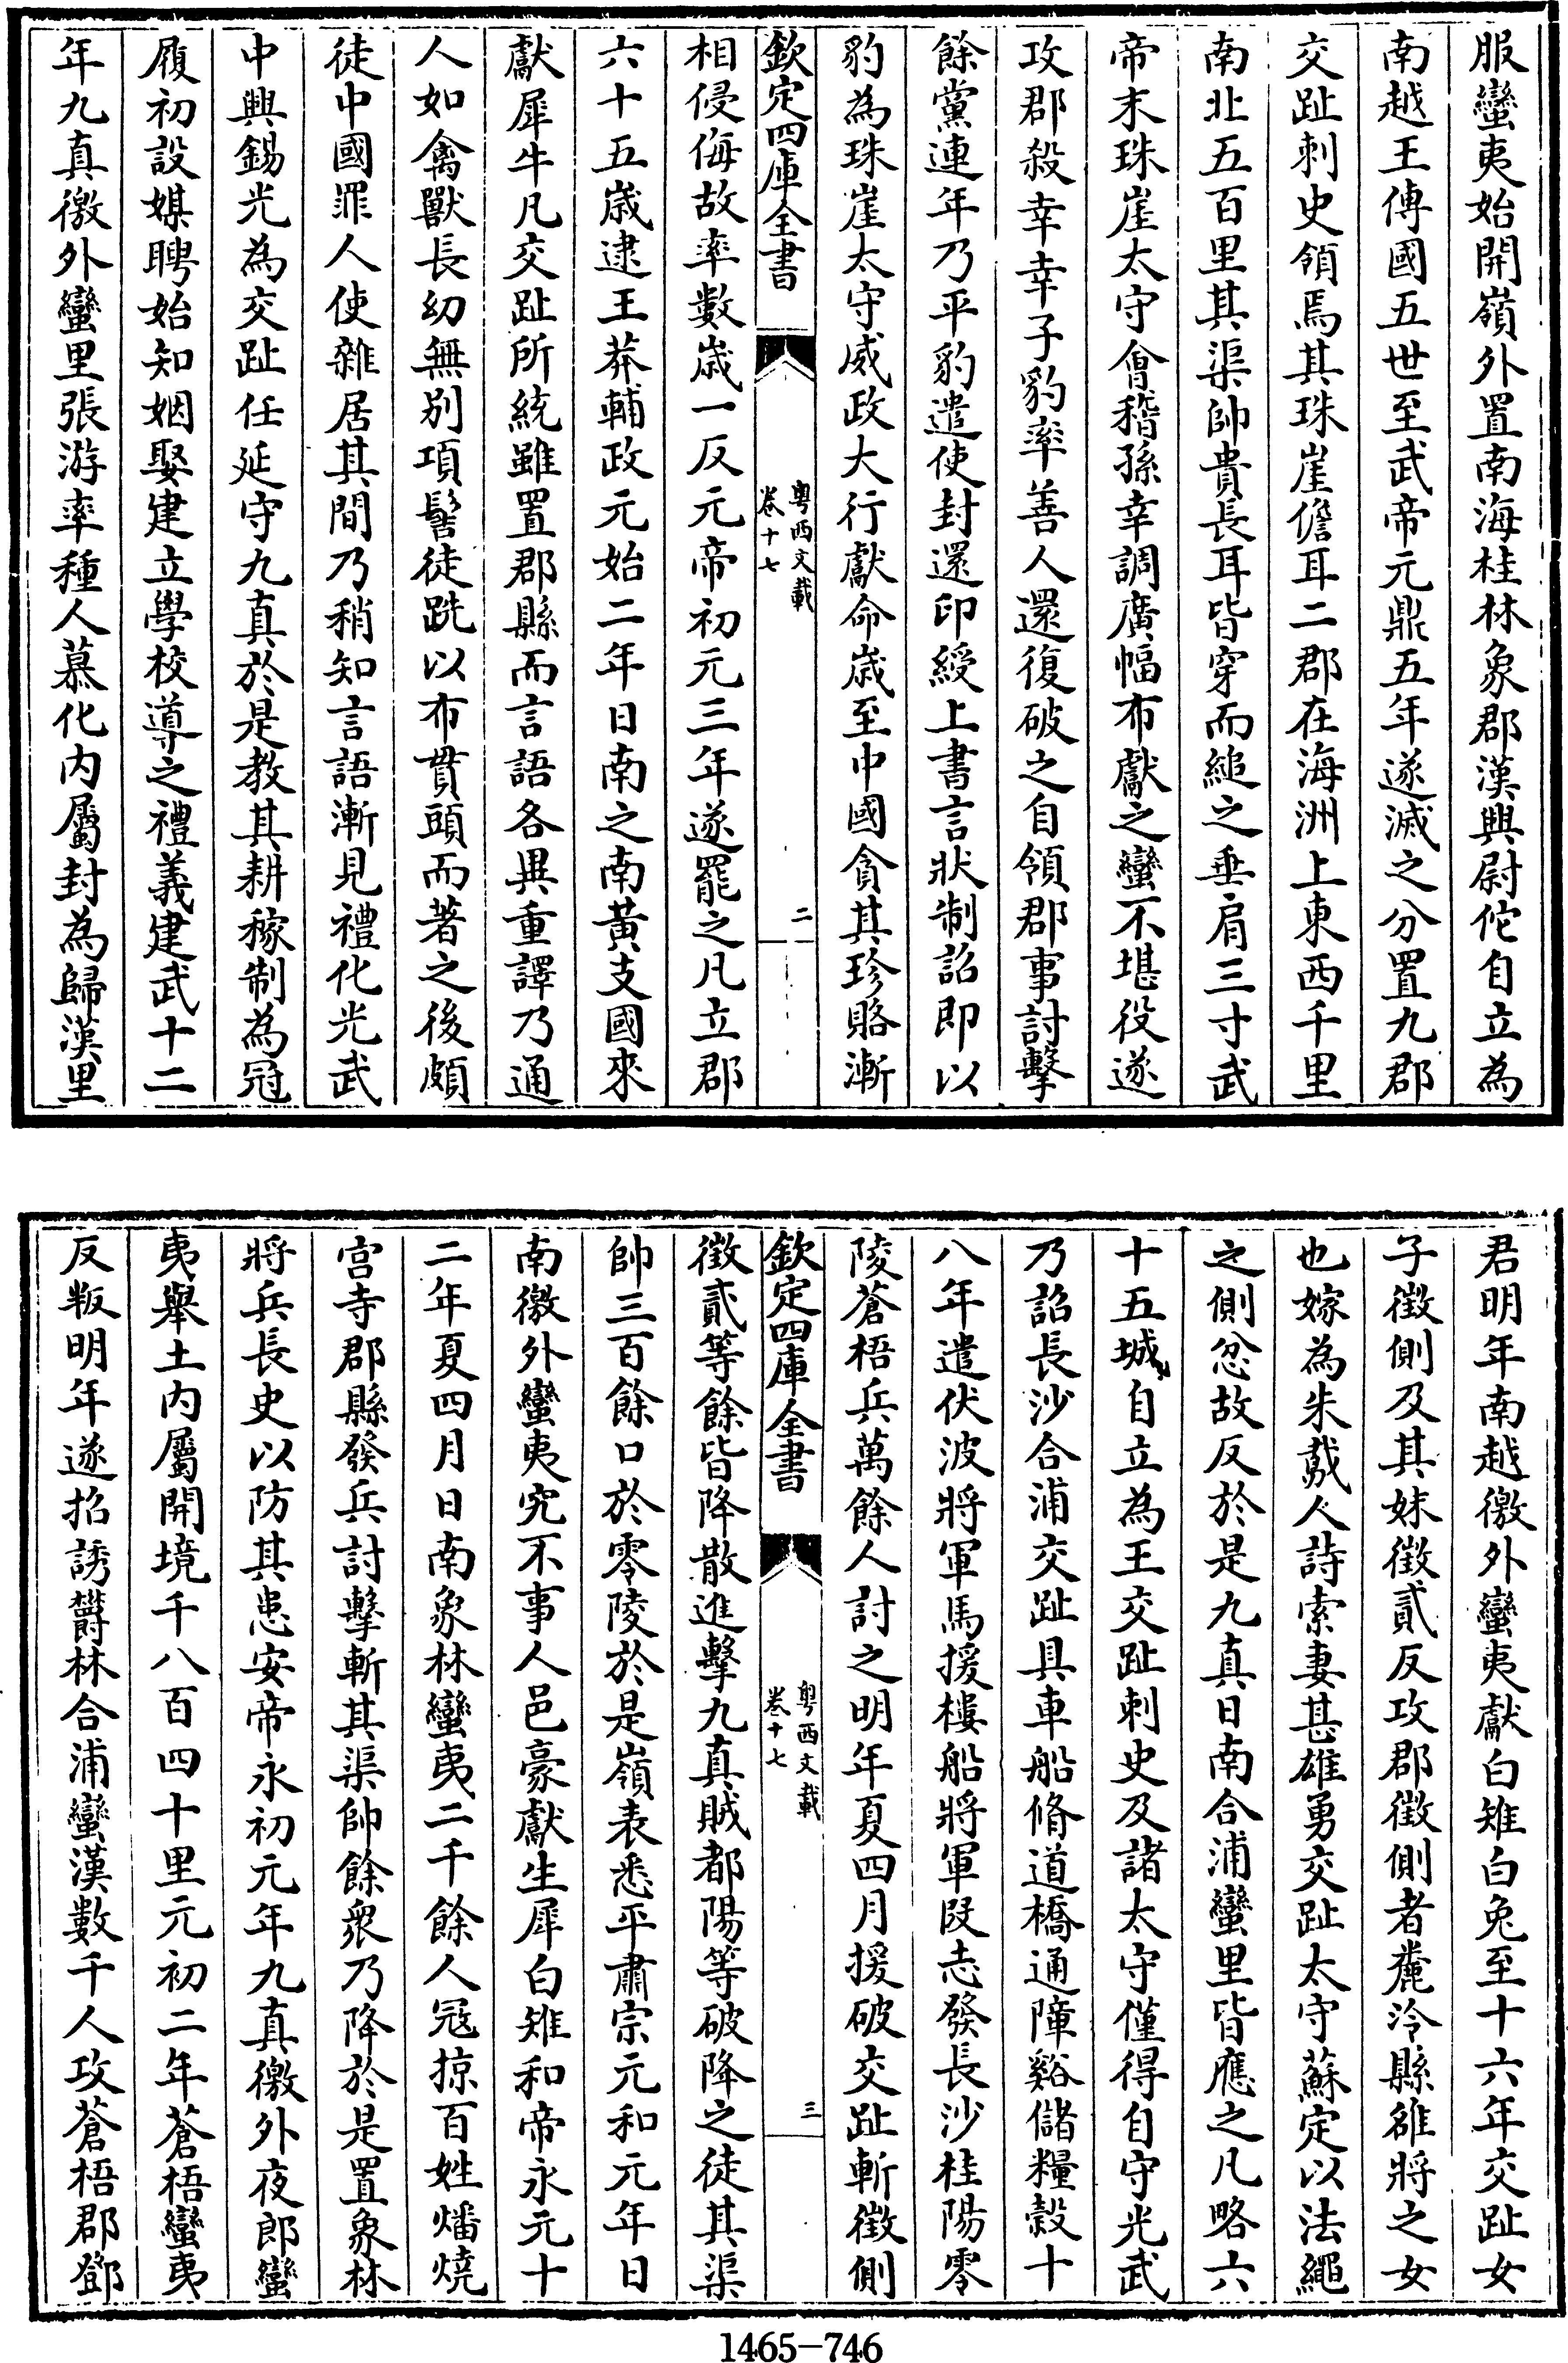 服蠻夷始開嶺外置南海桂林象郡漢興尉佗自立為
南越王傳國五世至武帝元鼎五年遂滅之分置九郡
交趾刺史領焉其珠崖儋耳二郡在海洲上東西千里
南北五百里其渠帥貴長耳皆穿而縋之垂肩三寸武
帝末珠崖太守會稽孫幸調廣幅布獻之蠻不堪役遂
攻郡殺幸幸子豹率善人還復破之自領郡事討擊
餘黨連年乃平豹遣使封還印綬上書言狀制詔即以
豹為珠崖太守威政大行獻命歲至中國貪其珍賂漸
欽定四庫全書
粵西文載
卷十七
二
相侵侮故率數歲一反元帝初元三年遂罷之凡立郡
六十五歲逮王莽輔政元始二年日南之南黃支國來
獻犀牛凡交趾所統雖置郡縣而言語各異重譯乃通
人如禽獸長幼無別項髻徒跣以布貫頭而著之後頗
徙中國罪人使雜居其間乃稍知言語漸見禮化光武
中興錫光為交趾任延守九真於是教其耕稼制為冠
履初設媒聘始知姻娶建立學校導之禮義建武十二
年九真徼外蠻里張游率種人慕化內屬封為歸漢里
君明年南越徼外蠻夷獻白雉白兔至十六年交趾女
子徵側及其妹徵貳反攻郡徵側者麊泠縣雒將之女
也嫁為朱䳒人詩索妻甚雄勇交趾太守蘇定以法繩
之側忿故反於是九真日南合浦蠻里皆應之凡略六
十五城自立為王交趾刺史及諸太守僅得自守光武
乃詔長沙合浦交趾具車船脩道橋通障谿儲糧榖十
八年遣伏波將軍馬援樓船將軍段志發長沙桂陽零
陵蒼梧兵萬餘人討之明年夏四月援破交趾斬徵側
欽定四庫全書
粵西文載
卷十七
三
徵貳等餘皆降散進擊九真賊都陽等破降之徙其渠
帥三百餘口於零陵於是嶺表悉平肅宗元和元年日
南徼外蠻夷究不事人邑豪獻生犀白雉和帝永元十
二年夏四月日南象林蠻夷二千餘人寇掠百姓燔燒
宫寺郡縣發兵討擊斬其渠帥餘衆乃降於是置象林
將兵長史以防其患安帝永初元年九真徼外夜郎蠻
夷舉土內屬開境千八百四十里元初二年蒼梧蠻夷
反叛明年遂招誘欝林合浦蠻漢數千人攻蒼梧郡鄧
1465-746